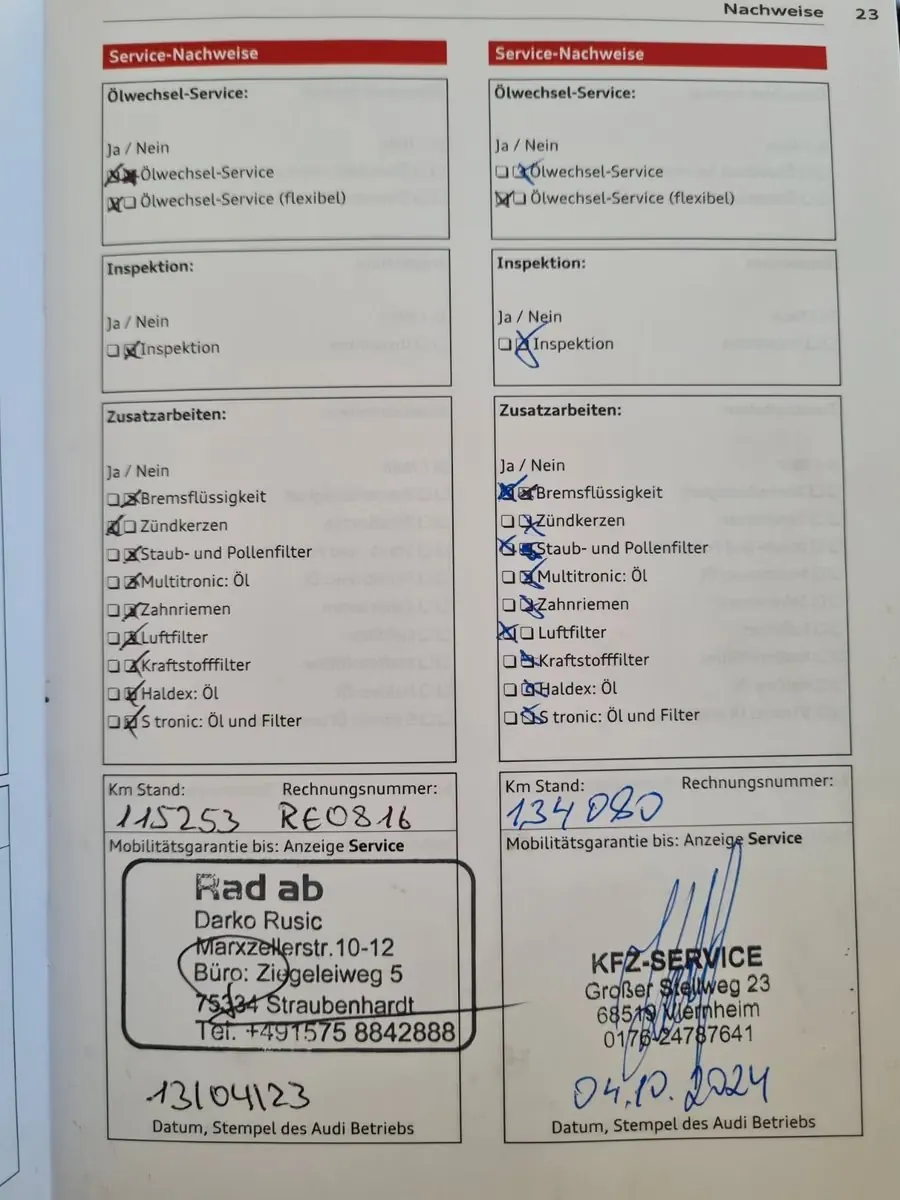 Nachweise 23
Service-Nachweise
Ölwechsel-Service:
Ja / Nein
Ölwechsel-Service
Ölwechsel-Service (flexibel)
Inspektion:
Ja / Nein
Inspektion
Zusatzarbeiten:
Ja / Nein
Bremsflüssigkeit
Zündkerzen
Staub- und Pollenfilter
Multitronic: Öl
Zahnriemen
Luftfilter
Kraftstofffilter
Haldex: Öl
S tronic: Öl und Filter
Km Stand: Rechnungsnummer:
115253 RE0816
Mobilitätsgarantie bis: Anzeige Service
Rad ab
Darko Rusic
Marxzellerstr.10-12
Büro: Ziegeleiweg 5
75334 Straubenhardt
Tel. +491575 8842888
13/04/23
Datum, Stempel des Audi Betriebs
Service-Nachweise
Ölwechsel-Service:
Ja / Nein
Ölwechsel-Service
Ölwechsel-Service (flexibel)
Inspektion:
Ja / Nein
Inspektion
Zusatzarbeiten:
Ja / Nein
Bremsflüssigkeit
Zündkerzen
Staub- und Pollenfilter
Multitronic: Öl
Zahnriemen
Luftfilter
Kraftstofffilter
Haldex: Öl
S tronic: Öl und Filter
Km Stand: Rechnungsnummer:
134080
Mobilitätsgarantie bis: Anzeige Service
KFZ-SERVICE
Großer Stellweg 23
68519 Viernheim
0176-24787641
04.10.2024
Datum, Stempel des Audi Betriebs